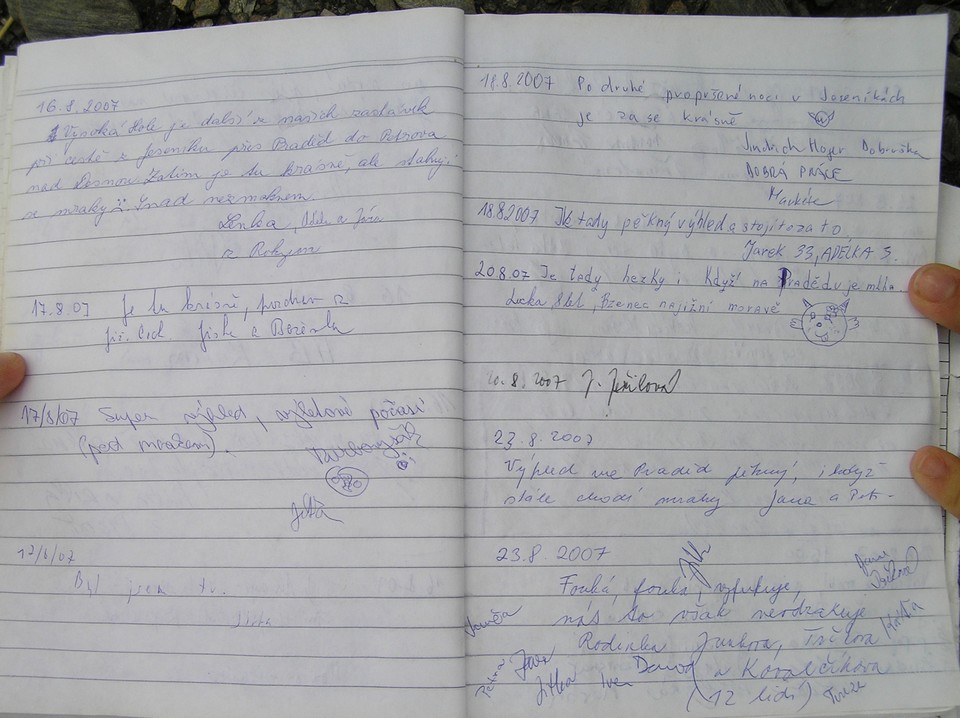 16.8.2007
Vysoká Hole je další z našich zastávek
při cestě z Jeseníku přes Praděd do Petrova
nad Desnou. Zatím je tu krásně, ale stahují
se mraky. Snad nezmoknem.
Lenka, a Jára
z Rokycan
17.8.07 Je tu krásně,
Jirka a
17/8/07 Super výhled, výletové počasí
(pod mrakem).
Jitka
Byl jsem tu.
Jirka
18.8.2007 Po druhé propršené noci v Jeseníkách
je zase krásně
Jindřich Dobruška
DOBRÁ PRÁCE
Markéta
18.8.2007 Je tady pěkný výhled a stojí to za to
Jarek 33, ADÉLKA 5.
20.8.07 Je tady hezky i když na Pradědu je mlha
Lucka 8 let, Bzenec na jižní moravě
20.8.2007 J.
23.8.2007
Výhled na Praděd pěkný, i když
stále chodí mraky Jana a Petr.
23.8.2007
Fouká, fouká, vyfukuje,
nás to však neodrazuje
Rodinka
a Kovalčíkova
Jitka Iva
(12 lidí)